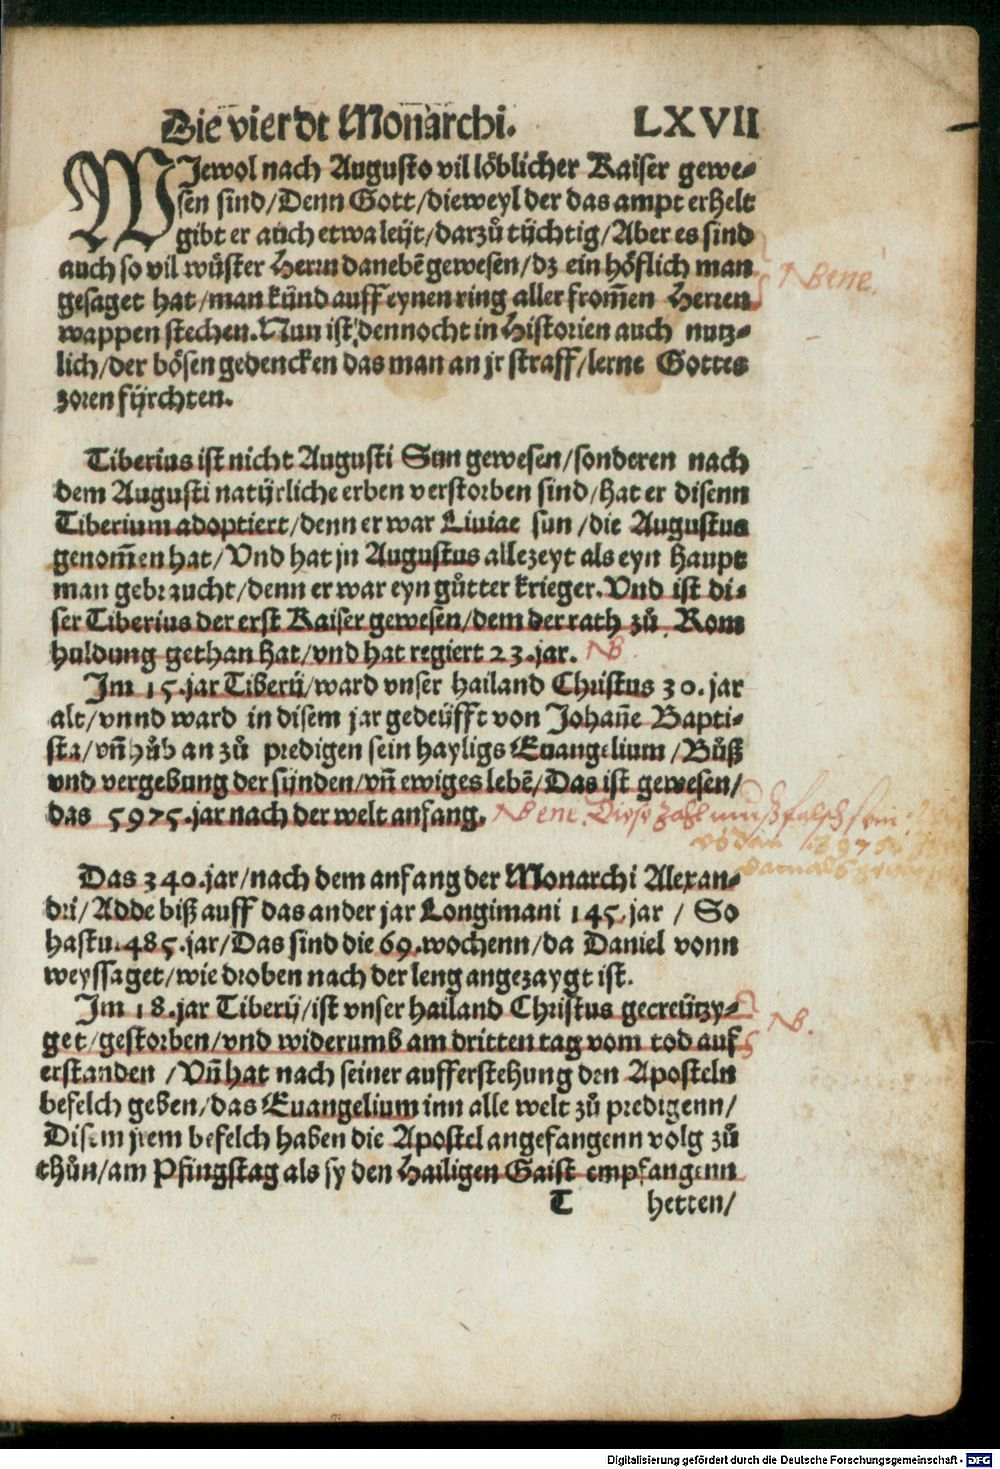 Die vierdt Monarchi. LXVII
WJewol nach Augusto vil löblicher Kaiser gewe-
sen sind/Denn Gott/dieweyl der das ampt erhelt
gibt er auch etwa leüt/darzů tüchtig/Aber es sind
auch so vil wüster Herrn danebē gewesen/dz ein höflich man
gesaget hat/man künd auff eynen ring aller from̄en Herren
wappen stechen. Nun ist dennocht in Historien auch nutz-
lich/der bösen gedencken das man an jr straff/lerne Gottes
zoren fürchten.
Tiberius ist nicht Augusti Sun gewesen/sonderen nach
dem Augusti natürliche erben verstorben sind/hat er disenn
Tiberium adoptiert/denn er war Liuiae sun/die Augustus
genom̄en hat/Vnd hat jn Augustus allezeyt als eyn Haupt
man gebraucht/denn er war eyn gůtter krieger. Vnd ist di-
ser Tiberius der erst Kaiser gewesen/dem der rath zů Rom
huldung gethan hat/vnd hat regiert 23.jar. NB.
Im 15.jar Tiberij/ward vnser hailand Christus 30.jar
alt/vnnd ward in disem jar gedeüfft von Johañe Bapti-
sta/vñ hůb an zů predigen sein hayligs Euangelium/Bůß
vnd vergebung der sünden/vñ ewiges lebē/Das ist gewesen/
das 5975.jar nach der welt anfang. NBene. Diese Zahl muß falsch sein
Das 340.jar/nach dem anfang der Monarchi Alexan-
dri/Adde biß auff das ander jar Longimani 145.jar / So
hastu.485.jar/Das sind die 69.wochenn/da Daniel vonn
weyssaget/wie droben nach der leng angezaygt ist.
Im 18.jar Tiberij/ist vnser hailand Christus gecreützy-
get/gestorben/vnd widerumb am dritten tag vom tod auf
erstanden /Vñ hat nach seiner aufferstehung den Aposteln
befelch geben/das Euangelium inn alle welt zů predigenn/
Disem jrem befelch haben die Apostel angefangenn volg zů
thůn/am Pfingstag als sy den Hailigen Gaist empfangenn
T hetten/
NBene.
NB.
Digitalisierung gefördert durch die Deutsche Forschungsgemeinschaft - DFG